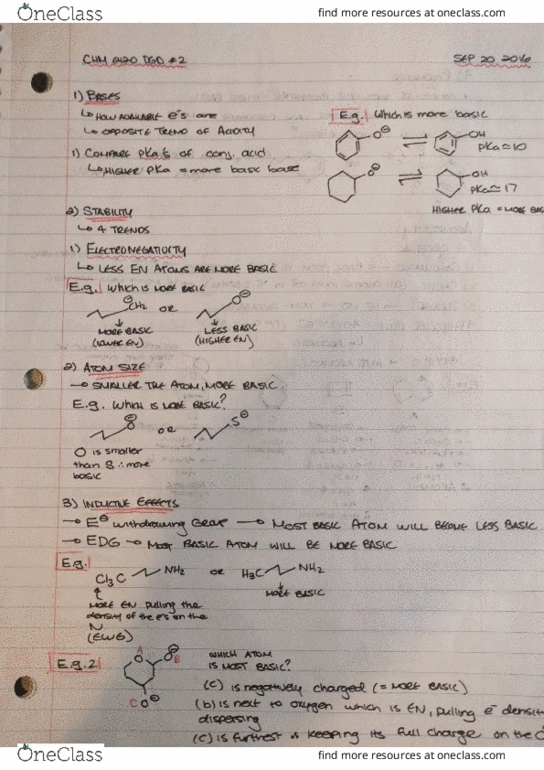 OneClass
find more resources at oneclass.com
CHM 2120 DGD #2
SEP 20 2016
1) BASES
↳ HOW AVAILABLE e⁻s are
↳ OPPOSITE TREND OF ACIDITY
E.g. Which is more basic
O⊖ ⇌ OH
pKa≈10
1) COMPARE pKa's OF conj. acid
↳ HIGHER PKa = more basic base
O⊖ ⇌ OH
pKa≈17
HIGHER PKa = MORE BAS
2) STABILITY
↳ 4 TRENDS
1) ELECTRONEGATIVITY
↳ LESS EN ATOMS ARE MORE BASIC
E.g. Which is MORE BASIC
⊖CH2 OR O⊖
MORE BASIC
(LOWER EN)
LESS BASIC
(HIGHER EN)
2) ATOM SIZE
→ SMALLER THE ATOM, MORE BASIC
E.g. Which is MORE BASIC?
O⊖ OR S⊖
O is smaller
than S ∴ more
basic
3) INDUCTIVE EFFECTS
→ E⊖ withdrawing Group → MOST BASIC ATOM WILL BECOME LESS BASIC
→ EDG → MOST BASIC ATOM WILL BE MORE BASIC
E.g.
Cl3C NH2 OR H3C NH2
MORE BASIC
MORE EN pulling the
density of the e's on the
N
(EWG)
E.g. 2
A
O
O⊖
B
C O⊖
WHICH ATOM
IS MOST BASIC?
(C) is negatively charged (= MORE BASIC)
(b) is next to oxygen which is EN, pulling e⁻ densit
dispersing
(C) is furthest & keeping its full charge on the O
OneClass
find more resources at oneclass.com